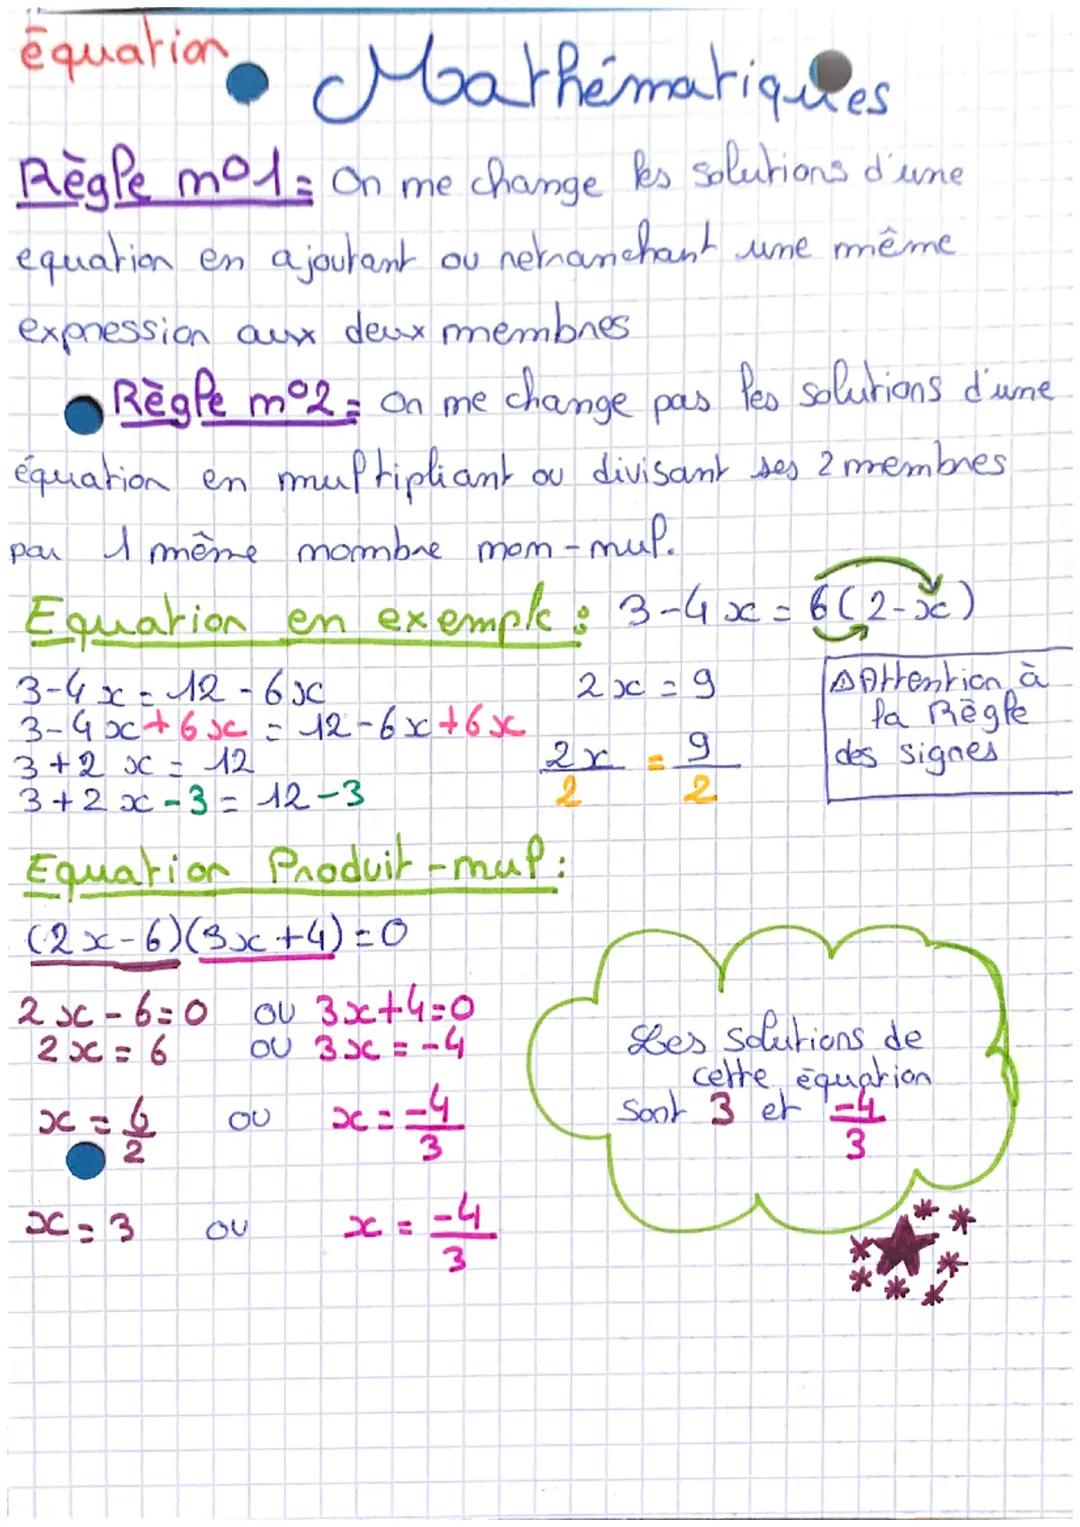 équation
Mathématiques
Règle n°1: On ne change les solutions d'une
equation en ajoutant ou retranchant une même
expression aux deux membres
Règle n°2: On ne change pas les solutions d'une
équation en multipliant ou divisant ses 2 membres
par 1 même nombre non-nul.
Equation en exemple : 3-4x = 6(2-x)
3-4x = 12-6x
3-4x+6x = 12-6x+6x
3+2x = 12
3+2x-3 = 12-3
2x = 9
2x/2 = 9/2
⚠Attention à
la Règle
des signes
Equation Produit-nul :
(2x-6)(3x+4)=0
2x-6=0 ou 3x+4=0
2x=6 ou 3x=-4
x=6/2 ou x=-4/3
x=3 ou x=-4/3
Les solutions de
cette équation
sont 3 et -4/3